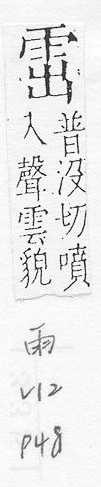 䨹
普没切噴
入聲雲貌
雨
V12
P48